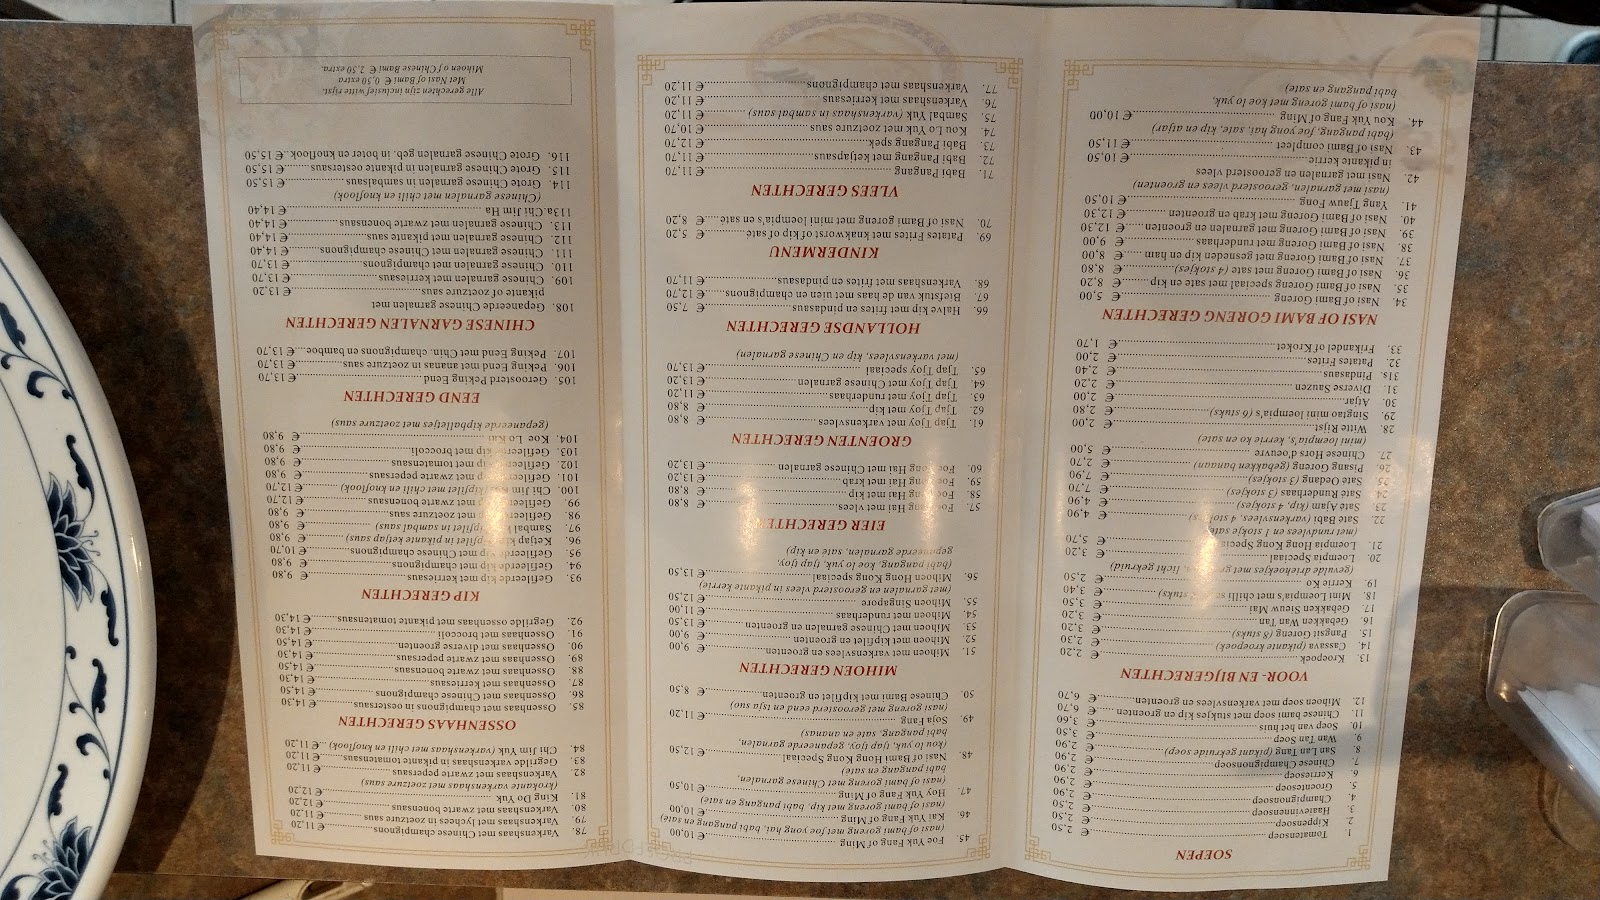 SOEPEN
1. Tomatensoep € 2,50
2. Kippensoep € 2,50
3. Haaievinnen € 2,50
4. Champignonsoep € 2,90
5. Groentesoep € 2,90
6. Kerriesoep € 2,90
7. Chinese Champignonsoep € 2,90
8. San Lan Tang (pikant gekruide soep) € 2,90
9. Wan Tan Soep € 3,50
10. Soep van het huis € 3,60
11. Chinese bami soep met stukjes kip en groenten € 6,70
12. Mihoen soep met varkensvlees en groenten € 6,70
VOOR- EN BIJGERECHTEN
13. Kroepoek € 2,20
14. Cassava (pikante kroepoek) € 2,30
15. Pangsit Goreng (8 stuks) € 3,20
16. Gebakken Wan Tan € 3,20
17. Gebakken Sieuw Mai € 3,50
18. Mini Loempia's met chilli stuks) € 3,40
19. Kerrie Ko € 2,50
(gevulde driehoekjes met licht gekruid)
20. Loempia Speciaal € 3,20
21. Loempia Hong Kong Speciaal € 5,70
(met rundvlees en 1 stokje saté)
22. Saté Babi (varkensvlees, 4 stokjes) € 4,90
23. Saté Ajam (kip, 4 stokjes) € 4,90
24. Saté Runderhaas (3 stokjes) € 7,70
25. Saté Oedang (3 stokjes) € 7,90
26. Pisang Goreng (gebakken banaan) € 2,70
27. Chinese Hors d'oeuvre € 5,00
(mini loempia's, kerrie ko en saté)
28. Witte Rijst € 2,00
29. Singtao mini loempia's (6 stuks) € 2,80
30. Atjar € 2,00
31. Diverse Sauzen € 2,20
31s. Pindasaus € 2,40
32. Patates Frites € 2,00
33. Frikandel of Kroket € 1,70
NASI OF BAMI GORENG GERECHTEN
34. Nasi of Bami Goreng € 5,00
35. Nasi of Bami Goreng speciaal met saté en kip € 8,20
36. Nasi of Bami Goreng met saté (4 stokjes) € 8,80
37. Nasi of Bami Goreng met gesneden kip en ham € 8,00
38. Nasi of Bami Goreng met runderhaas € 9,00
39. Nasi of Bami Goreng met garnalen en groenten € 12,30
40. Nasi of Bami Goreng met krab en groenten € 12,30
41. Yang Tjauw Fong € 10,50
(nasi met garnalen, geroosterd vlees en groenten)
42. Nasi met garnalen en geroosterd vlees
in pikante kerrie € 10,50
43. Nasi of Bami compleet € 11,50
(babi pangang, foe yong hai, saté, kip en atjar)
44. Kou Yuk Fang of Ming € 10,00
(nasi of bami goreng met koe lo yuk,
babi pangang en saté)
45. Foe Yuk Fang of Ming € 10,00
(nasi of bami goreng met foe yong hai, babi pangang en saté)
46. Kai Yuk Fang of Ming € 10,00
(nasi of bami goreng met kip, babi pangang en saté)
47. Hoy Yuk Fang of Ming € 10,50
(nasi of bami goreng met Chinese garnalen,
babi pangang en saté)
48. Nasi of Bami Hong Kong Speciaal € 12,50
(kou lo yuk, tjap tjoy, gepaneerde garnalen,
babi pangang, saté en ananas)
49. Soja Fang € 11,20
(nasi goreng met geroosterd eend en tsja suo)
50. Chinese Bami met kipfilet en groenten € 8,50
MIHOEN GERECHTEN
51. Mihoen met varkensvlees en groenten € 9,00
52. Mihoen met kipfilet en groenten € 9,00
53. Mihoen met Chinese garnalen en groenten € 13,50
54. Mihoen met runderhaas € 11,00
55. Mihoen Singapore € 12,50
(met garnalen en geroosterd vlees in pikante kerrie)
56. Mihoen Hong Kong speciaal € 13,50
(babi pangang, koe lo yuk, tjap tjoy,
gepaneerde garnalen, saté en kip)
EIER GERECHTEN
57. Foe Yong Hai met vlees € 8,80
58. Foe Yong Hai met kip € 8,80
59. Foe Yong Hai met krab € 13,20
60. Foe Yong Hai met Chinese garnalen € 13,20
GROENTEN GERECHTEN
61. Tjap Tjoy met varkensvlees € 8,80
62. Tjap Tjoy met kip € 8,80
63. Tjap Tjoy met runderhaas € 11,20
64. Tjap Tjoy met Chinese garnalen € 13,20
65. Tjap Tjoy speciaal € 13,70
(met varkensvlees, kip en Chinese garnalen)
HOLLANDSE GERECHTEN
66. Halve kip met frites en pindasaus € 7,50
67. Biefstuk van de haas met uien en champignons € 12,70
68. Varkenshaas met frites en pindasaus € 11,70
KINDERMENU
69. Patates Frites met knakworst of kip of saté € 5,20
70. Nasi of Bami goreng met mini loempia's en saté € 8,20
VLEES GERECHTEN
71. Babi Pangang € 11,70
72. Babi Pangang met ketjapsaus € 11,70
73. Babi Pangang spek € 12,70
74. Kou Lo Yuk met zoetzure saus € 10,70
75. Sambal Yuk (varkenshaas in sambal saus) € 11,20
76. Varkenshaas met kerriesaus € 11,20
77. Varkenshaas met champignons € 11,20
78. Varkenshaas met Chinese champignons € 11,20
79. Varkenshaas met lychees in zoetzure saus € 11,20
80. Varkenshaas met zwarte bonensaus € 12,20
81. King Do Yuk € 12,20
(krokante varkenshaas met zoetzure saus)
82. Varkenshaas met zwarte pepersaus € 11,20
83. Gegrilde varkenshaas in pikante tomatensaus € 11,20
84. Chi Jim Yuk (varkenshaas met chili en knoflook) € 11,20
OSSENHAAS GERECHTEN
85. Ossenhaas met oestersaus € 14,30
86. Ossenhaas met Chinese champignons € 14,50
87. Ossenhaas met kerriesaus € 14,30
88. Ossenhaas met zwarte bonensaus € 14,50
89. Ossenhaas met zwarte pepersaus € 14,30
90. Ossenhaas met diverse groenten € 14,50
91. Ossenhaas met broccoli € 14,30
92. Gegrilde ossenhaas met pikante tomatensaus € 14,30
KIP GERECHTEN
93. Gefileerde kip met kerriesaus € 9,80
94. Gefileerde kip met champignons € 9,80
95. Gefileerde kip met Chinese champignons € 10,70
96. Ketjap kipfilet in pikante ketjap saus) € 9,80
97. Sambal kipfilet in sambal saus) € 9,80
98. Gefileerde kip met zoetzure saus € 9,80
99. Gefileerde kip met zwarte bonensaus € 12,70
100. Chi Jim Kai (kipfilet met chili en knoflook) € 12,70
101. Gefileerde kip met zwarte pepersaus € 9,80
102. Gefileerde kip met tomatensaus € 9,80
103. Gefileerde kip met broccoli € 9,80
104. Koe Lo Kai € 9,80
(gepaneerde kipballetjes met zoetzure saus)
EEND GERECHTEN
105. Geroosterd Peking Eend € 13,70
106. Peking Eend met ananas in zoetzure saus € 13,70
107. Peking Eend met Chin. champignons en bamboe € 13,70
CHINESE GARNALEN GERECHTEN
108. Gepaneerde Chinese garnalen met
pikante of zoetzure saus € 13,20
109. Chinese garnalen met kerriesaus € 13,70
110. Chinese garnalen met champignons € 13,70
111. Chinese garnalen met Chinese champignons € 14,40
112. Chinese garnalen met pikante saus € 14,40
113. Chinese garnalen met zwarte bonensaus € 14,40
113a. Chi Jim Ha € 14,40
(Chinese garnalen met chili en knoflook)
114. Grote Chinese garnalen in sambalsaus € 15,50
115. Grote Chinese garnalen in pikante oestersaus € 15,50
116. Grote Chinese garnalen geb. in boter en knoflook € 15,50
Alle gerechten zijn inclusief witte rijst.
Met Nasi of Bami € 0,50 extra
Mihoen of Chinese Bami € 2,50 extra.